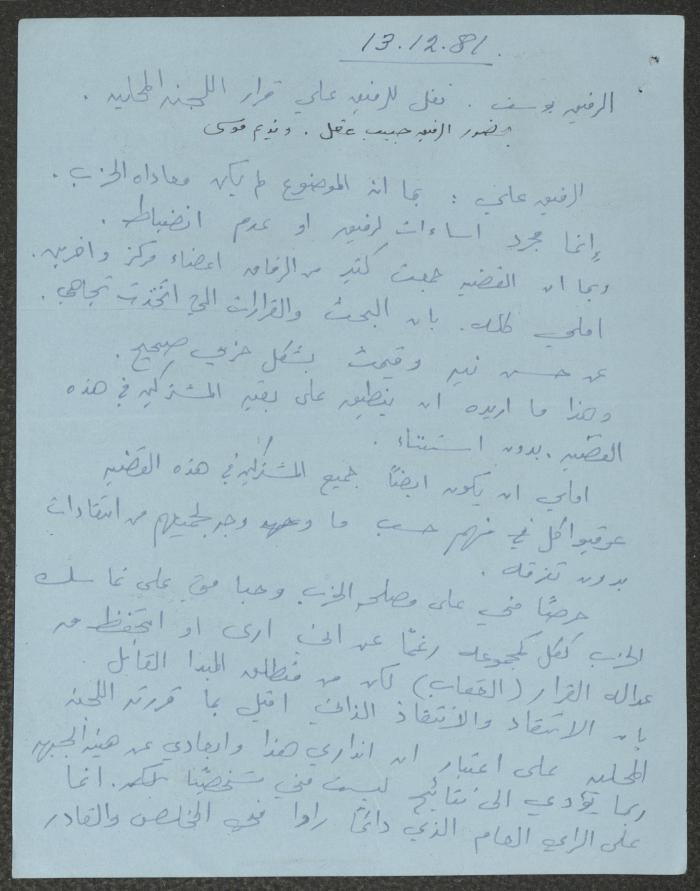 13.12.81.
الرفيق يوسف . نقل للرفيق علي قرار اللجنه المحليه .
بحضور الرفيق حبيب عقل . ونديم موسى
الرفيق علي : بما ان الموضوع لم يكن معاداه الحزب .
إنما مجرد اساءات لرفيق او عدم انضباط .
وبما ان القضيه جمعت كثير من الرفاق اعضاء مركز واخرين .
املي كله . بان البحث والقرارات التي اتخذت تجاهي .
عن حسن نيه وقيمت بشكل حزبي صحيح .
وهذا ما اريده ان ينطبق على بقيه المشتركين في هذه
القضيه . بدون استثناء .
املي ان يكون ايضاً جميع المشتركين في هذه القضيه
عوقبوا كل منهم حسب ما وجد لجميعهم من انتقادات
بدون تفرقه .
حرصاً مني على مصلحه الحزب وحبا مني على تماسك
الحزب ككل كمجموعه رغماً عن اني ارى او اتحفظ من
عداله القرار (العقاب) لكن من منطلق المبدا القائل
بان الانتقاد والانتقاد الذاتي اقبل بما قررته اللجنه
المحليه على اعتبار ان انذاري هذا وابعادي عن هيئه الجبهه
ربما يؤدي الى نتائج ليست مني شخصياً بلكه . انما
على الراي العام الذي دائماً راوا في المخلص والقادر